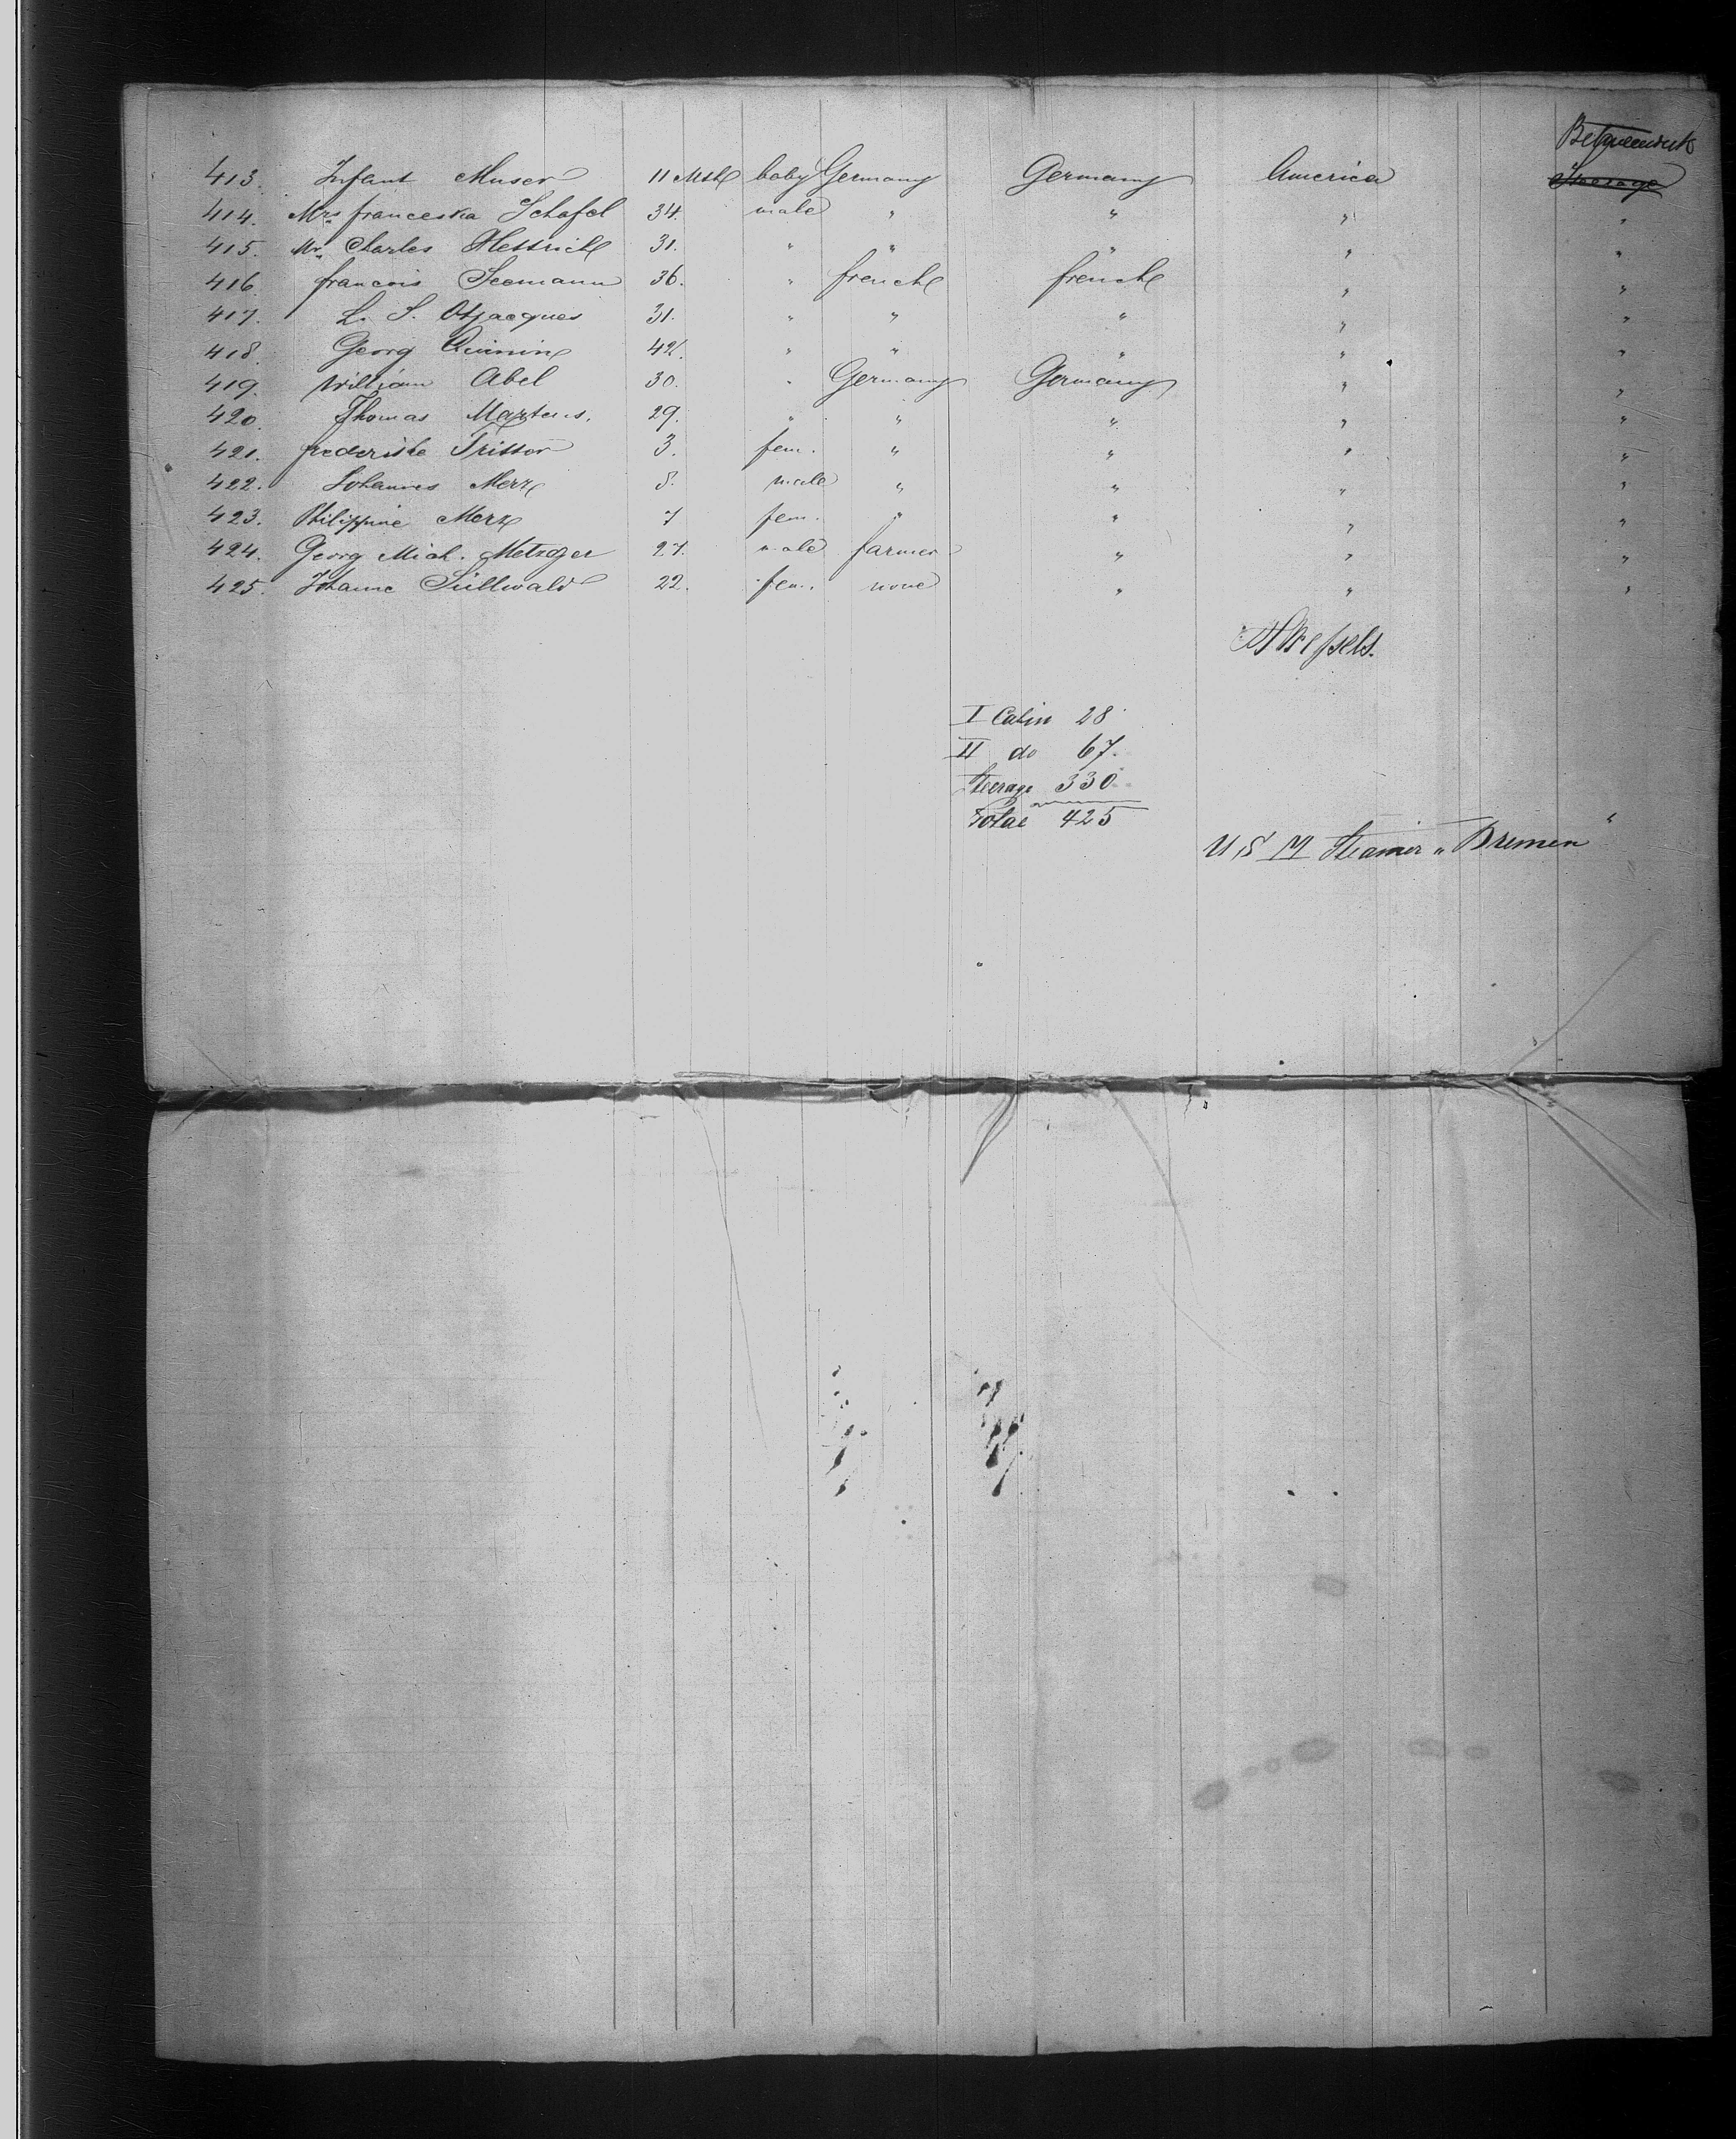 Between deck
413. Infant Muser 11 Mth baby Germany Germany America Steerage
414. Mrs franceska Schafel 34. male " " " "
415. Mr. Charles Hettrich 31. " " " " "
416. francois Seemann 36. " french french " "
417. L. S. Otjacques 31. " " " " "
418. Georg 42. " " " " "
419. William Abel 30. " Germany Germany " "
420. Thomas Martens. 29. " " " " "
421. frederike Trittor 3. fem. " " " "
422. Johannes Merz 8. male " " " "
423. Philippine Merz 7 fem. " " " "
424. Georg Mich. Metzger 27. male farmer " " "
425. Johanne Süllwald 22. fem. none " " "
H Wessels.
I Cabin 28
II do 67.
Steerage 330
Total 425
U S M Steamer „ Bremen "